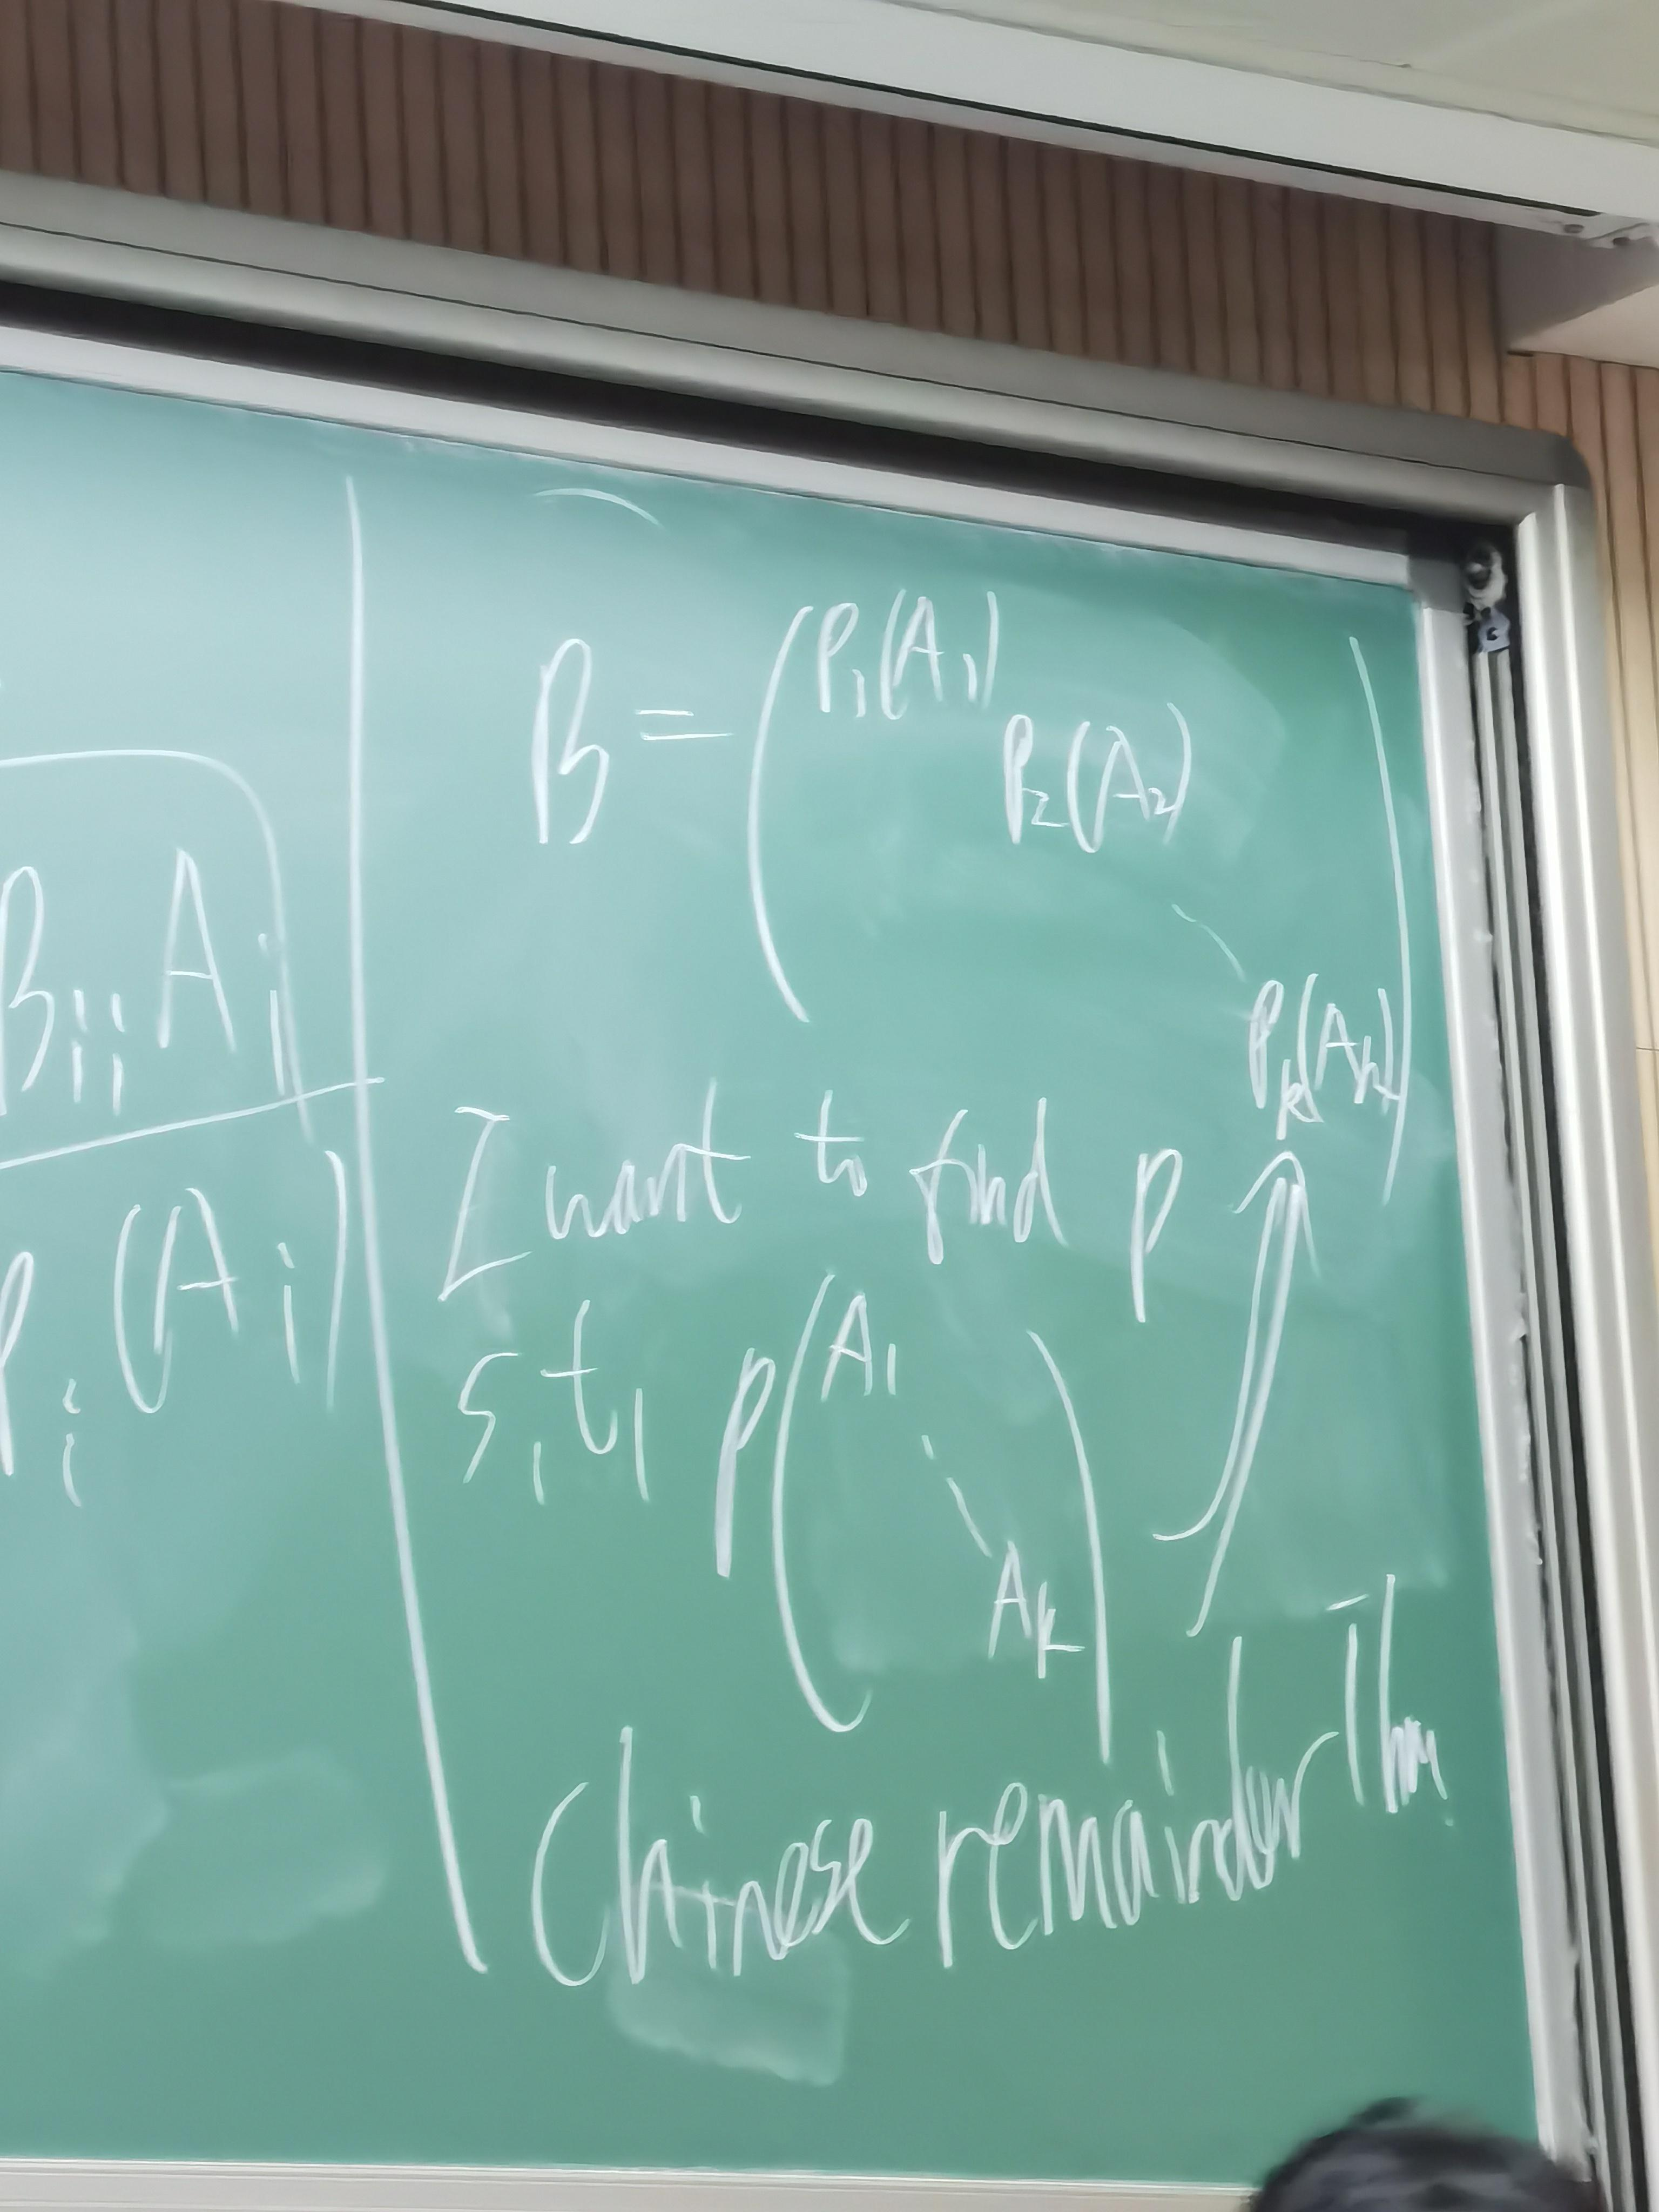 B_{ii} A_i
P_i (A_i)
B = ( P_1(A_1)
P_2(A_2)
P_k(A_k) )
I want to find p
s.t. p ( A_1
A_k )
Chinese remainder Thm